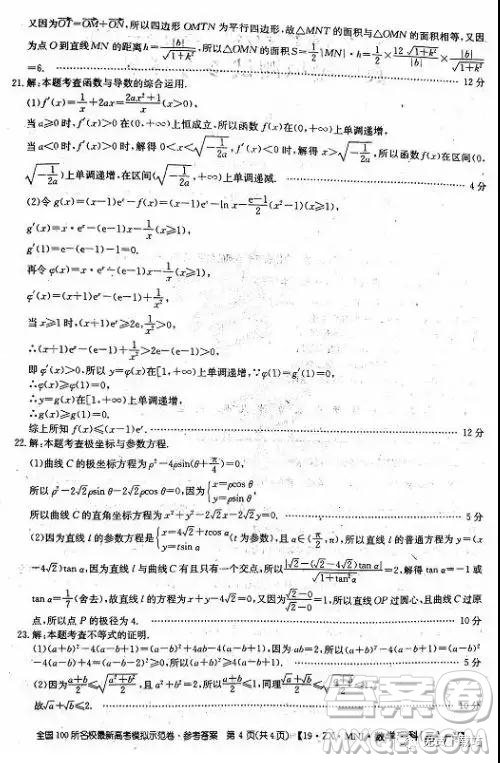 又因为OT=OM+ON,所以四边形 OMTN 为平行四边形,故△MNT 的面积与△OMN 的面积相等,又因
为点 O 到直线 MN 的距离h=|b|/√(1+k²),所以△OMN 的面积S=1/2|MN|·h=1/2×12√2√(1+k²)/|b|×|b|/√(1+k²)
=6. 12 分
21.解:本题考查函数与导数的综合运用.
(1)f′(x)=1/x+2ax=(2ax²+1)/x(x>0),
当a≥0 时,f′(x)>0 在(0,+∞)上恒成立,所以函数 f(x)在(0,+∞)上单调递增;
当a<0 时,f′(x)>0 时,解得 0<x<√(-1/2a),f′(x)<0 时,解得x>√(-1/2a),所以函数 f(x)在区间(0,
√(-1/2a))上单调递增,在区间(√(-1/2a),+∞)上单调递减. 4 分
(2)令 g(x)=(x-1)eˣ-f(x)=(x-1)eˣ-ln x-(e-1)/2(x²-1)(x≥1),
g′(x)=x·eˣ-(e-1)x-1/x(x≥1),
g′(1)=e-(e-1)-1=0.
再令φ(x)=x·eˣ-(e-1)x-1/x(x≥1),
φ′(x)=(x+1)eˣ-(e-1)+1/x²(x≥1),
当 x≥1 时,(x+1)eˣ≥2eˣ≥2e,
∴(x+1)eˣ-(e-1)+1/x²>2e-(e-1)>0,
即 φ′(x)>0,所以 y=φ(x)在[1,+∞)上单调递增,∵φ(1)=g′(1)=0,
∴φ(x)≥φ(1)=0.
∴y=g(x)在[1,+∞)上单调递增,
∴g(x)≥g(1)=0.
综上所知 f(x)≤(x-1)eˣ. 12 分
22.解:本题考查极坐标与参数方程.
(1)曲线 C 的极坐标方程为ρ²-4ρsin(θ+π/4)=0,
所以 ρ²-2√2ρsin θ-2√2ρcos θ=0,因为{x=ρcos θ y=ρsin θ,
所以曲线 C 的直角坐标方程为 x²+y²-2√2x-2√2y=0. 5 分
(2)因为直线 l 的参数方程为{x=4√2+tcos α y=tsin α(t 为参数),且 α∈(π/2,π),所以直线 l 的普通方程为 y=(x
-4√2)tan α,因为直线 l 与曲线 C 有且只有一个交点,所以|√2-(√2-4√2)tan α|/√(1+tan²α)=2,解得 tan α=-1 或
tan α=1/7(舍去),故直线 l 的方程为 x+y=4√2,又因为(√2-0)/(√2-0)×(-1)=-1,所以直线 OP 过圆心,且曲线 C 过原
点,所以点 P 的极径为 4. 10 分
23.解:本题考查不等式的证明.
(1)(a+b)²-4(a+b-1)=(a-b)²+4ab-4(a+b-1),因为 ab=2,所以(a+b)²-4(a+b-1)=(a-b)²
-4(a+b)+4=(a+b-2)²>0,所以(a+b)²>4(a+b-1). 5 分
全国 100 所名校最新高考模拟示范卷·参考答案 第 4 页(共 4 页)